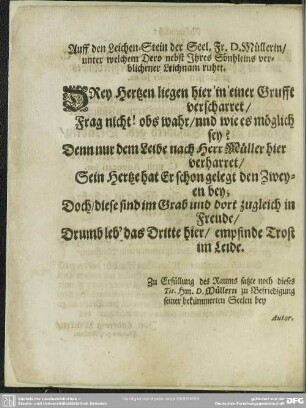 Auff den Leichen-Stein der Seel. Fr. D. Müllerin/
unter welchem Dero nebst Ihres Söhnleins ver-
blichener Leichnam ruhet.
DRey Hertzen liegen hier in einer Grufft
verscharret/
Frag nicht! obs wahr/ und wie es möglich
sey?
Denn nur dem Leibe nach Herr Müller hier
verharret/
Sein Hertze hat Er schon gelegt den Zwey-
en bey;
Doch/ diese sind im Grab und dort zugleich in
Freude/
Drumb leb' das Dritte hier/ empfinde Trost
im Leide.
Zu Erfüllung des Raums satzte noch dieses
Tit. Hrn. D. Müllern zu Befriedigung
seiner bekümmerten Seelen bey
Autor.